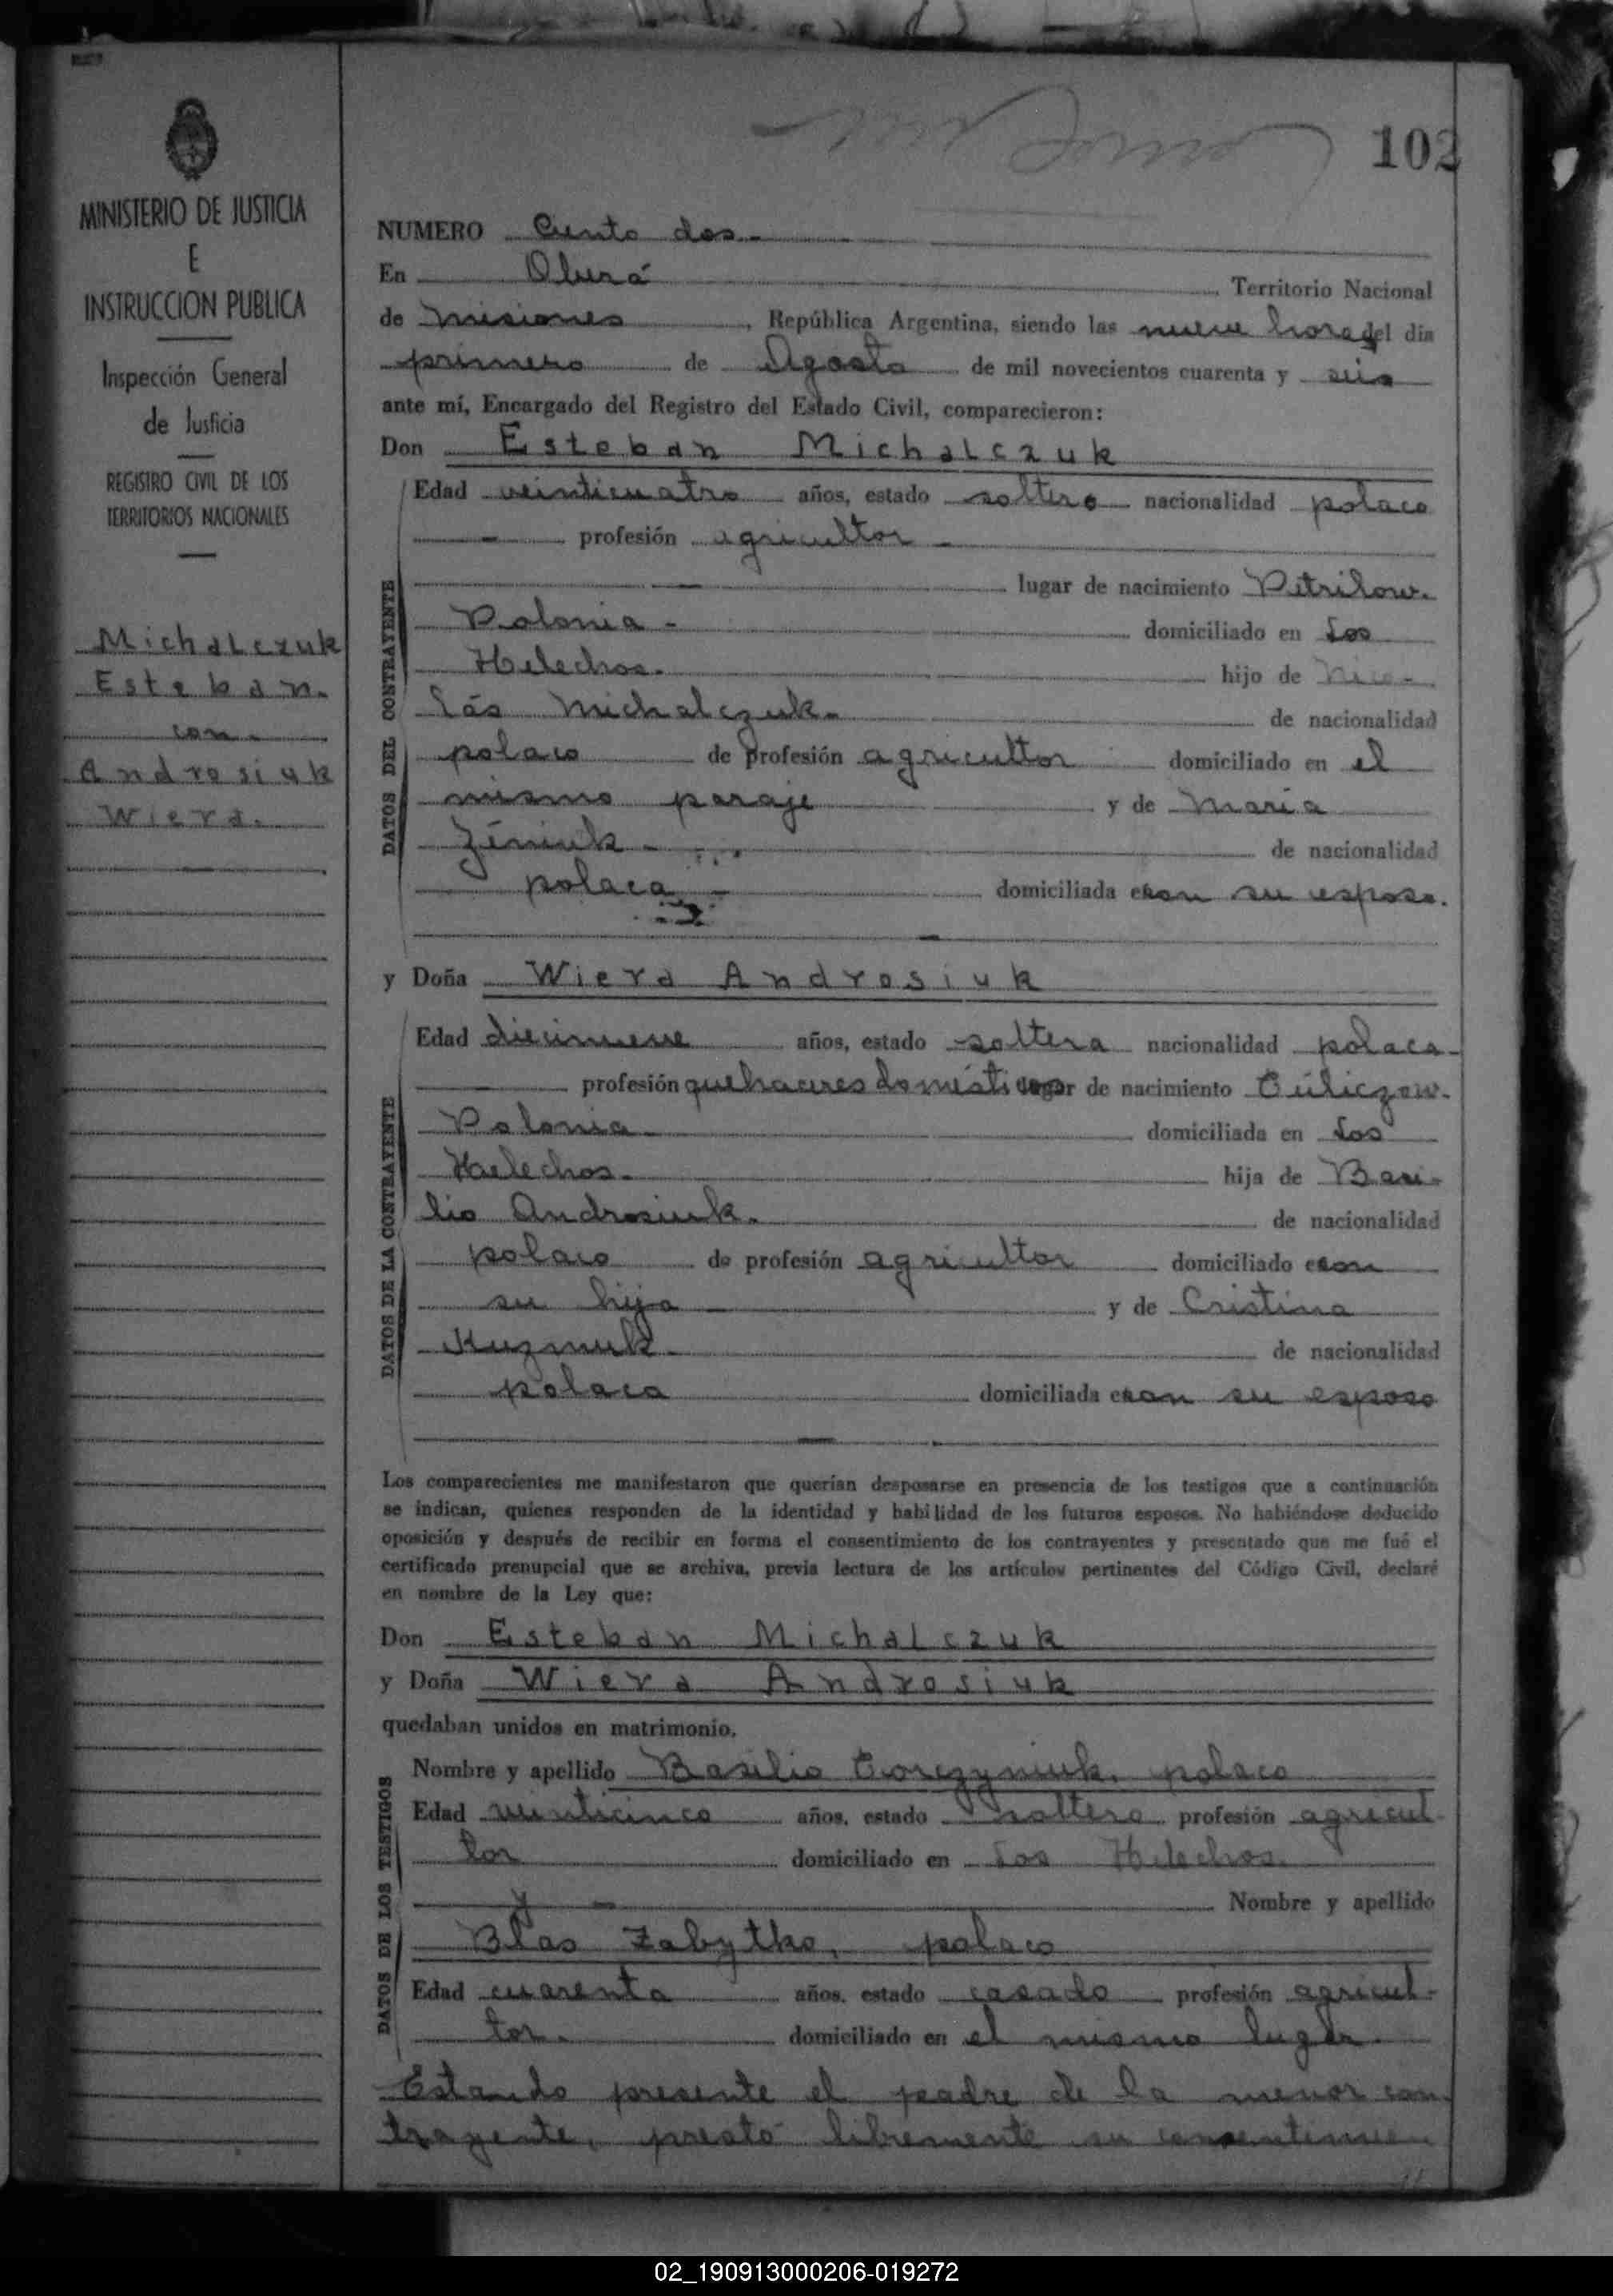 102
MINISTERIO DE JUSTICIA
E
INSTRUCCION PUBLICA
Inspección General
de Justicia
REGISTRO CIVIL DE LOS
TERRITORIOS NACIONALES
Michalczuk
Esteban.
con.
Androsiuk
Wiera.
NUMERO Ciento dos.-
En Oberá Territorio Nacional
de Misiones, República Argentina, siendo las nueve horas del día
primero de Agosto de mil novecientos cuarenta y seis
ante mí, Encargado del Registro del Estado Civil, comparecieron:
Don Esteban Michalczuk
DATOS DEL CONTRAYENTE
Edad veinticuatro años, estado soltero nacionalidad polaco
- profesión agricultor -
lugar de nacimiento Petrilow.
Polonia - domiciliado en Los
Helechos. hijo de Nico-
lás Michalczuk. de nacionalidad
polaco de profesión agricultor domiciliado en el
mismo paraje y de María
de nacionalidad
polaca - domiciliada con su esposo.
y Doña Wiera Androsiuk
DATOS DE LA CONTRAYENTE
Edad diecinueve años, estado soltera nacionalidad polaca-
profesión quehaceres domésticos lugar de nacimiento
Polonia domiciliada en Los
Helechos. hija de Basi-
lio Androsiuk. de nacionalidad
polaco de profesión agricultor domiciliado con
su hija y de Cristina
Kuzmuk. de nacionalidad
polaca domiciliada con su esposo
Los comparecientes me manifestaron que querían desposarse en presencia de los testigos que a continuación
se indican, quienes responden de la identidad y habilidad de los futuros esposos. No habiéndose deducido
oposición y después de recibir en forma el consentimiento de los contrayentes y presentado que me fué el
certificado prenupcial que se archiva, previa lectura de los artículos pertinentes del Código Civil, declaré
en nombre de la Ley que:
Don Esteban Michalczuk
y Doña Wiera Androsiuk
quedaban unidos en matrimonio.
DATOS DE LOS TESTIGOS
Nombre y apellido Basilio polaco
Edad veinticinco años, estado soltero profesión agricul-
tor domiciliado en Los Helechos.
y - Nombre y apellido
Blas Zabytko, polaco
Edad cuarenta años, estado casado profesión agricul-
tor. domiciliado en el mismo lugar.
Estando presente el padre de la menor con
trayente, prestó libremente su consentimien
02_190913000206-019272